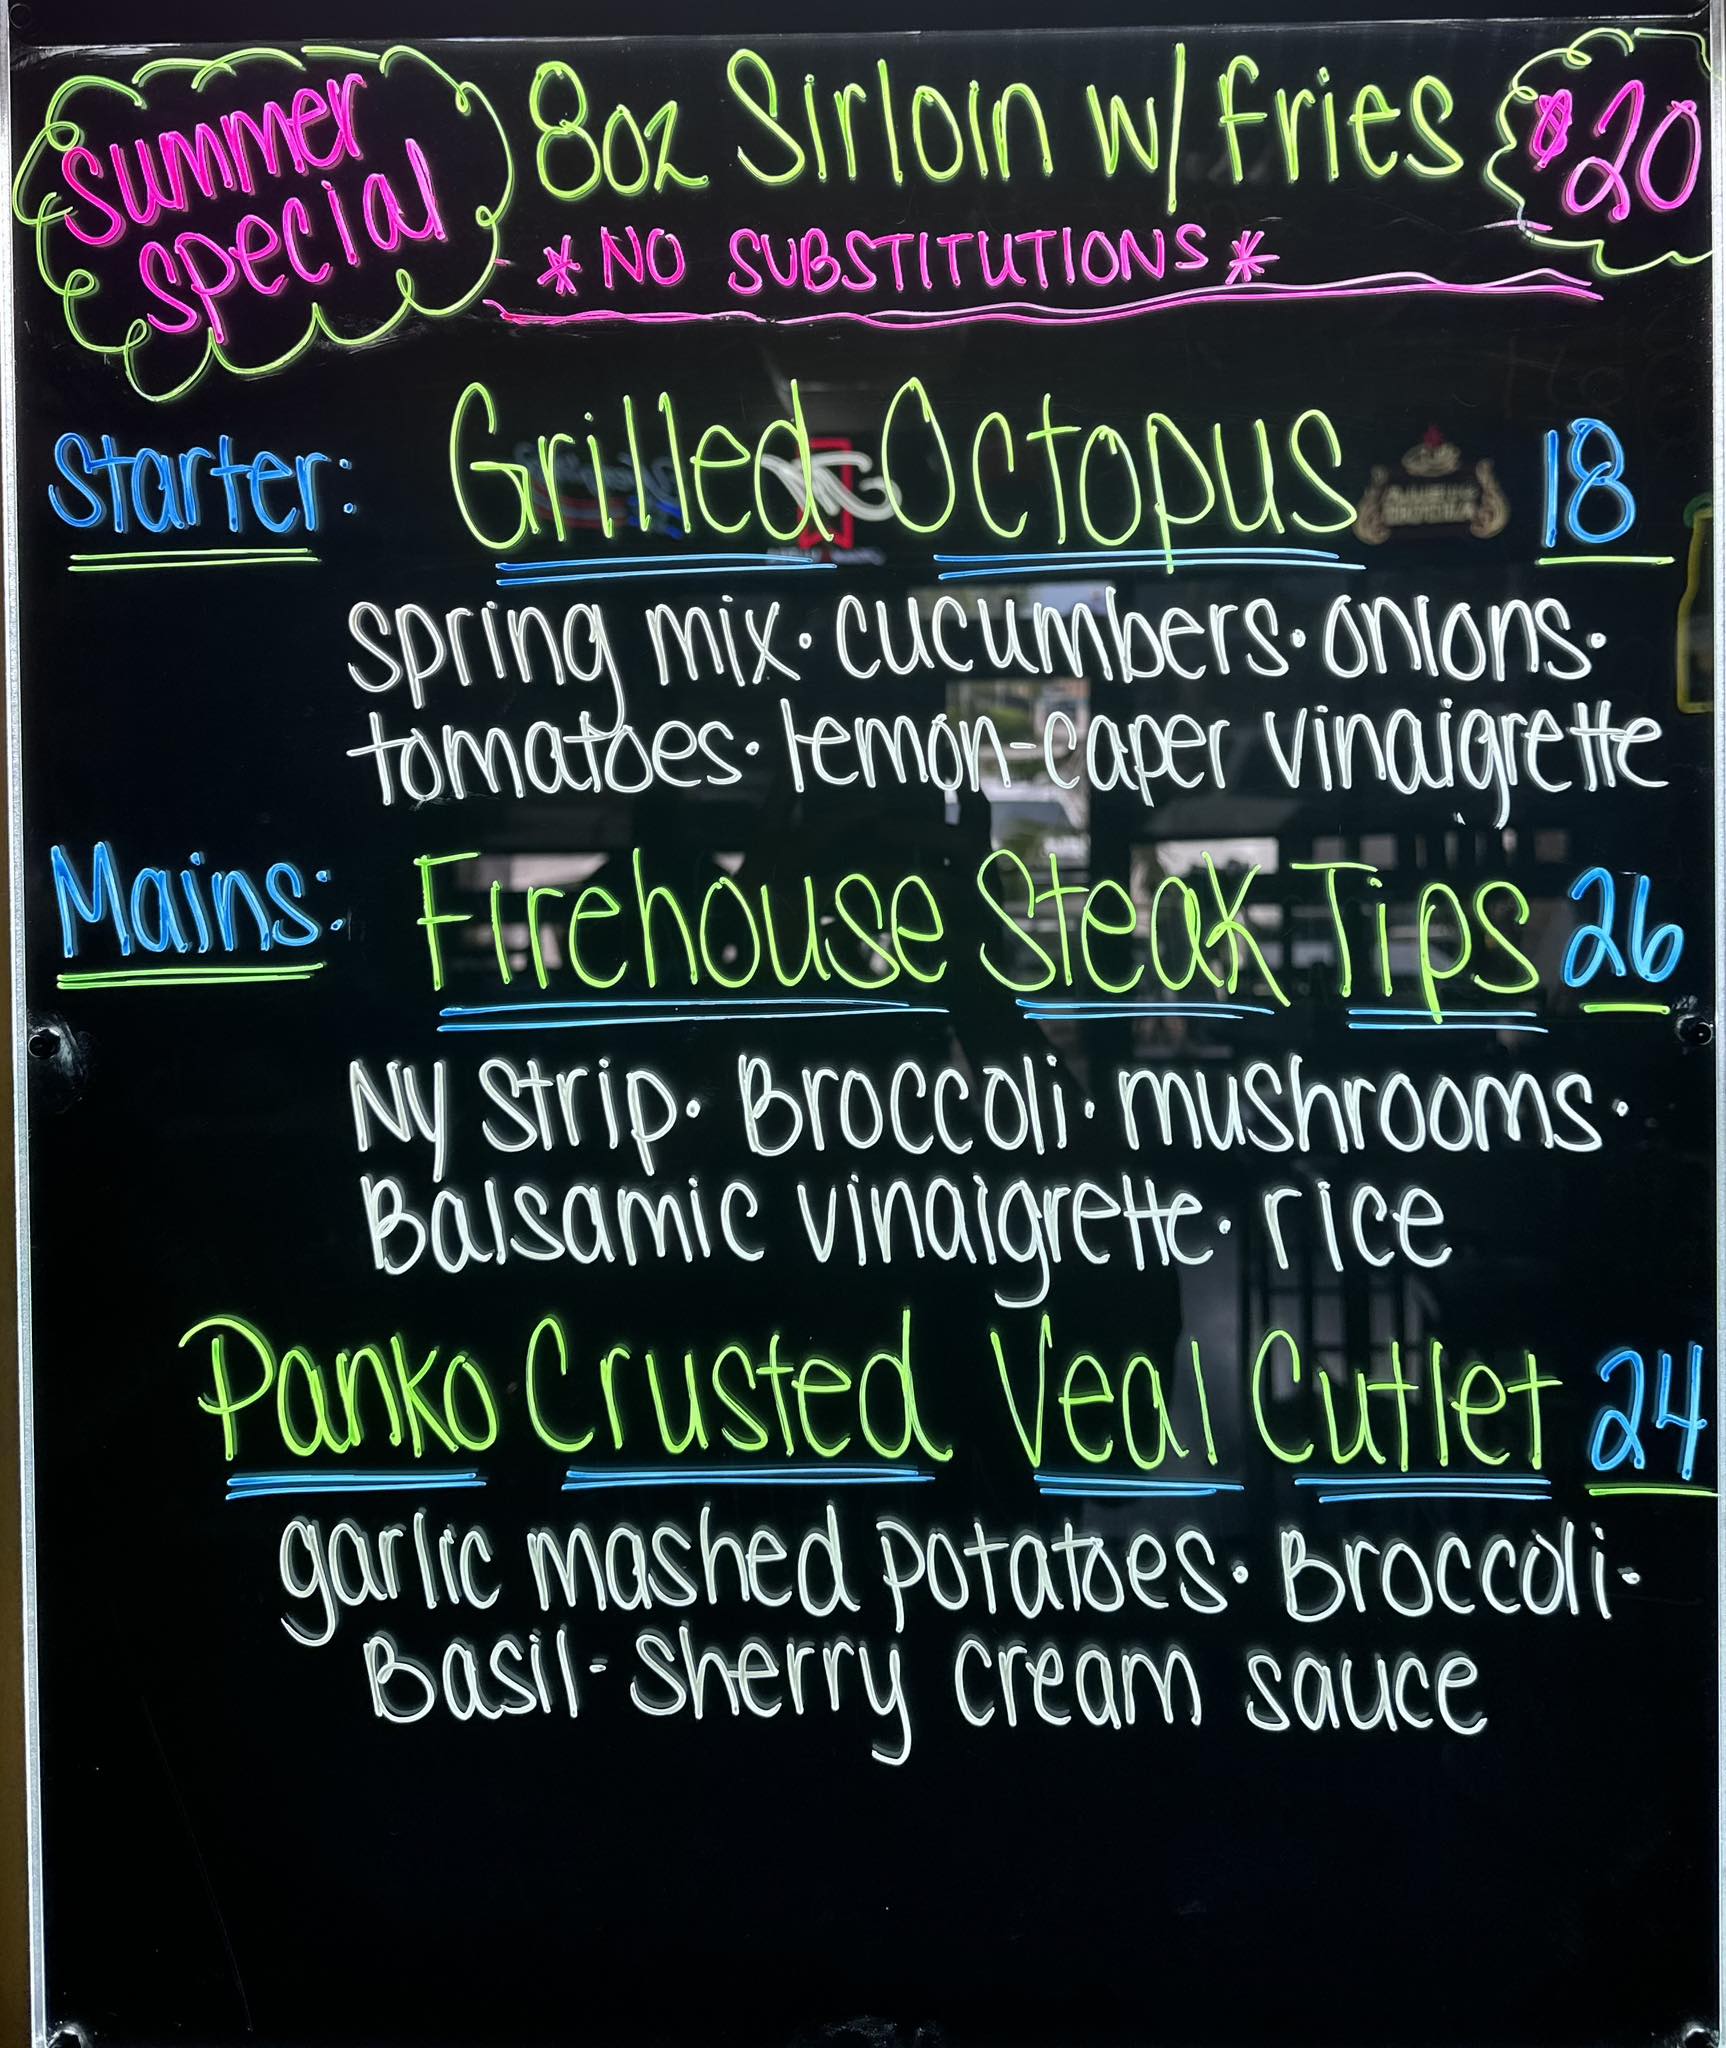 Summer Special
8oz Sirloin w/ Fries $20
*NO SUBSTITUTIONS*
Starter: Grilled Octopus 18
spring mix · cucumbers · onions ·
tomatoes · lemon-caper vinaigrette
Mains: Firehouse Steak Tips 26
NY Strip · Broccoli · mushrooms ·
Balsamic vinaigrette · rice
Panko Crusted Veal Cutlet 24
garlic mashed potatoes · Broccoli ·
Basil-Sherry cream sauce